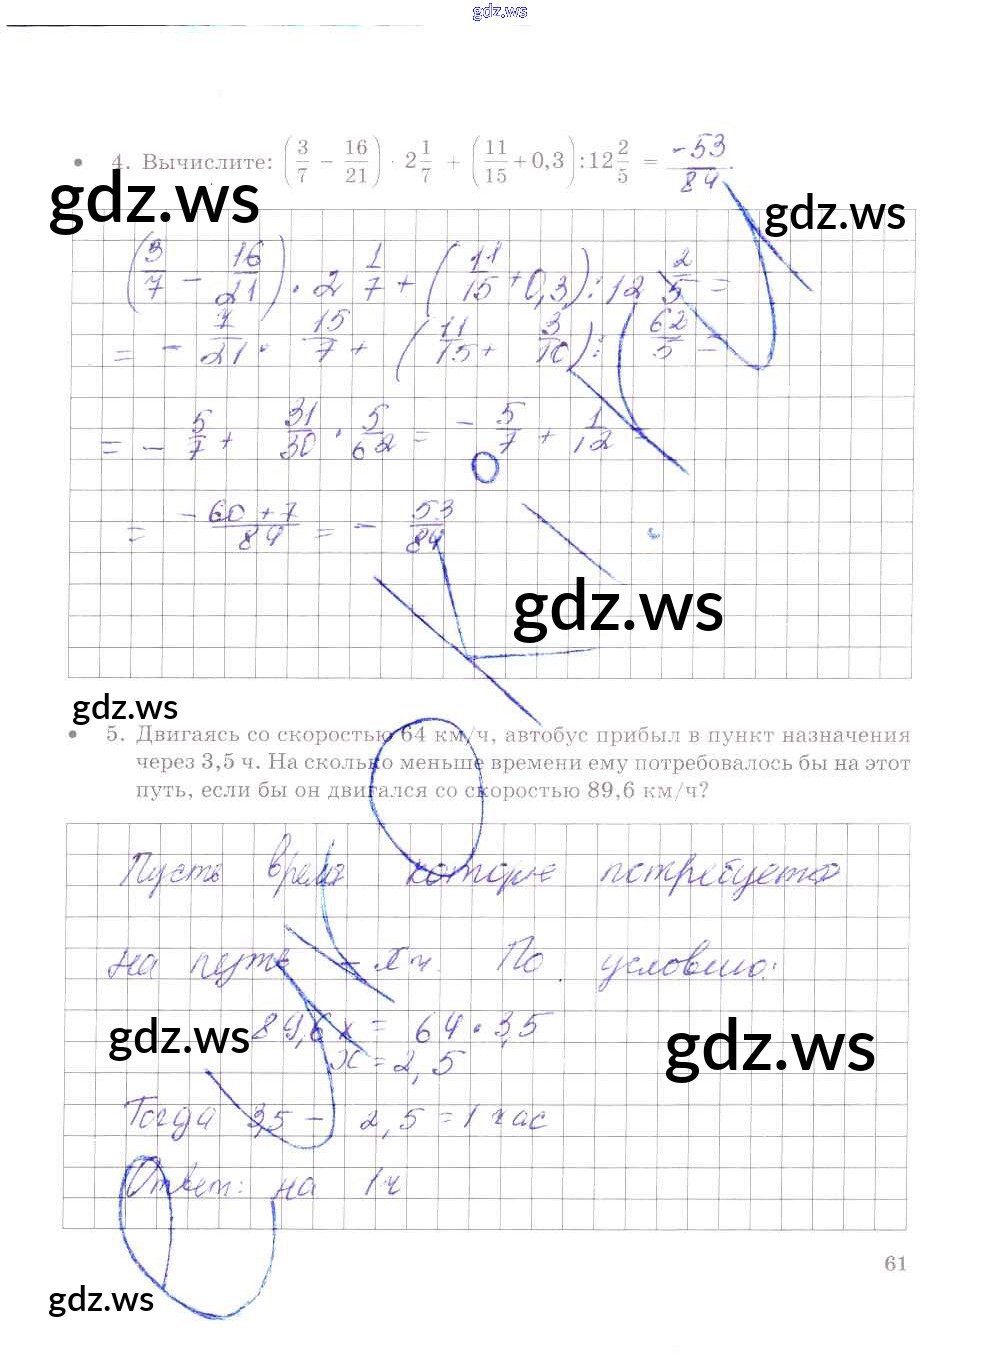 gdz.ws
• 4. Вычислите: (3/7 − 16/21) · 2 1/7 + (11/15 + 0,3) : 12 2/5 = −53/84.
gdz.ws
gdz.ws
(3/7 − 16/21) · 2 1/7 + (11/15 + 0,3) : 12 2/5 =
= − 7/21 · 15/7 + (11/15 + 3/10) : 62/5 =
= − 5/7 + 31/30 · 5/62 = − 5/7 + 1/12 =
= −60 + 7/84 = − 53/84
gdz.ws
gdz.ws
• 5. Двигаясь со скоростью 64 км/ч, автобус прибыл в пункт назначения
через 3,5 ч. На сколько меньше времени ему потребовалось бы на этот
путь, если бы он двигался со скоростью 89,6 км/ч?
Пусть время которое потребуется
на путь – x ч. По условию:
89,6 x = 64 · 3,5
x = 2,5
gdz.ws
gdz.ws
Тогда 3,5 – 2,5 = 1 час
Ответ: на 1 ч
61
gdz.ws